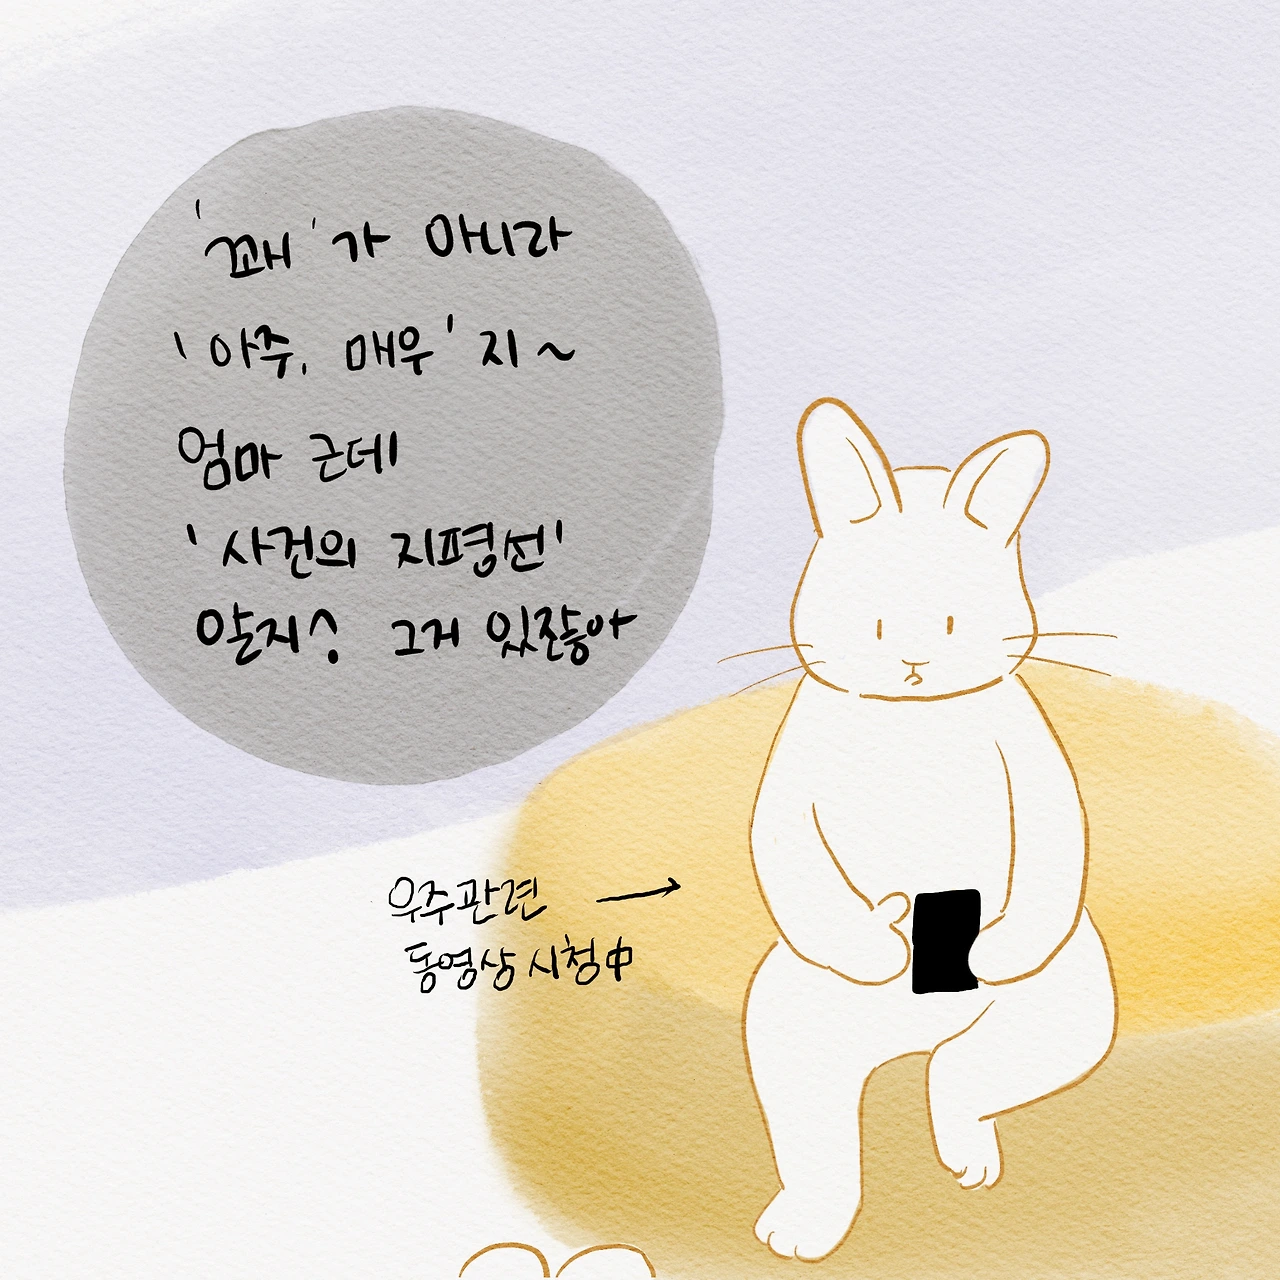 '꽤'가 아니라
'아주, 매우'지~
엄마 근데
'사건의 지평선'
알지? 그거 있잖아
우주관련 →
동영상 시청中